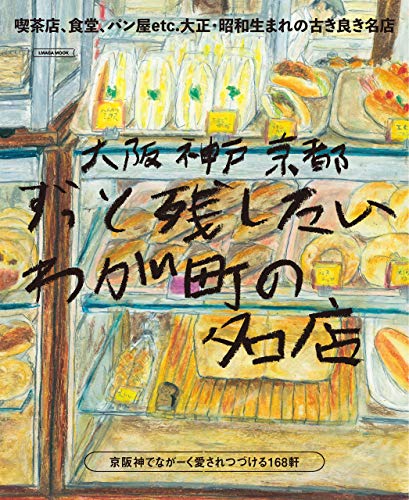 喫茶店、食堂、パン屋etc.大正・昭和生まれの古き良き名店
LMAGA MOOK
大阪 神戸 京都
ずっと残したい
わが町の
名店
京阪神でながーく愛されつづける168軒